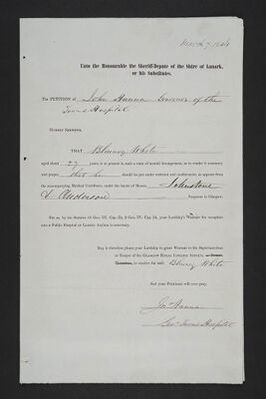 Unto the Honourable the Sheriff-Depute of the Shire of Lanark,
or his Substitutes.
The PETITION of John Hanna Governor of the
Towns Hospital
HUMBLY SHEWETH,
THAT
aged about 27 years is at present in such a state of mental derangement, as to render it necessary
and proper, that he should be put under restraint and confinement, as appears from
the accompanying Medical Certificate, under the hands of Messrs. Johnstone
& Anderson Surgeons in Glasgow.
your Lordship's Warrant for reception
into a Public Hospital or Lunatic Asylum is necessary.
May it therefore please your Lordship to grant Warrant to the Superintendent
or Keeper of the GLASGOW ROYAL LUNATIC ASYLUM,
to receive the said White
And your Petitioner will ever pray.
Jno Hanna
Govr Towns Hospital